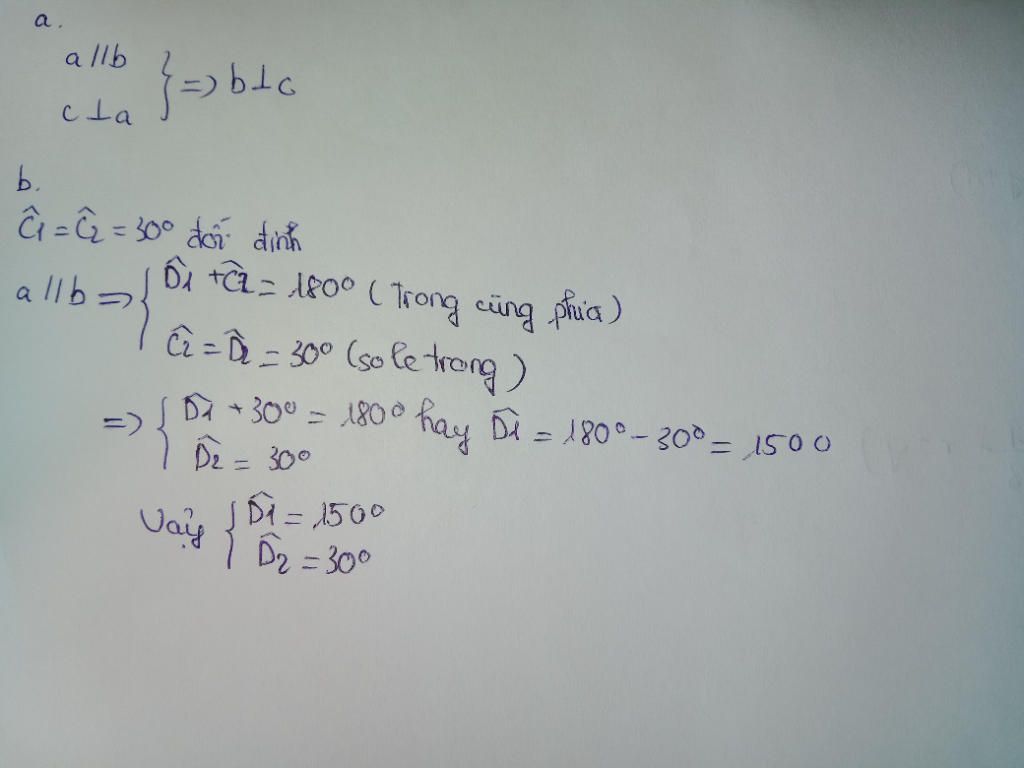 a.
a // b
c ⊥ a } => b ⊥ c
b.
Ĉ1 = Ĉ2 = 30° đối đỉnh
a // b => { D̂1 + Ĉ2 = 180° (trong cùng phía)
Ĉ2 = D̂2 = 30° (so le trong)
=> { D̂1 + 30° = 180° hay D̂1 = 180° - 30° = 150°
D̂2 = 30°
Vậy { D̂1 = 150°
D̂2 = 30°